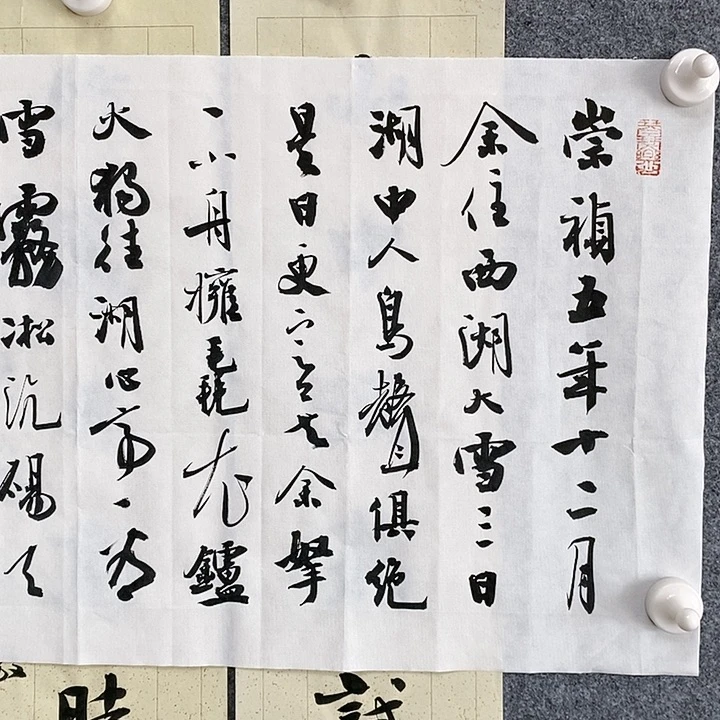 崇禎五年十二月
余住西湖大雪三日
湖中人鳥聲俱絕
是日更定矣余拏
一小舟擁毳衣鑪
火獨往湖心亭看
雪霧凇沆碭天